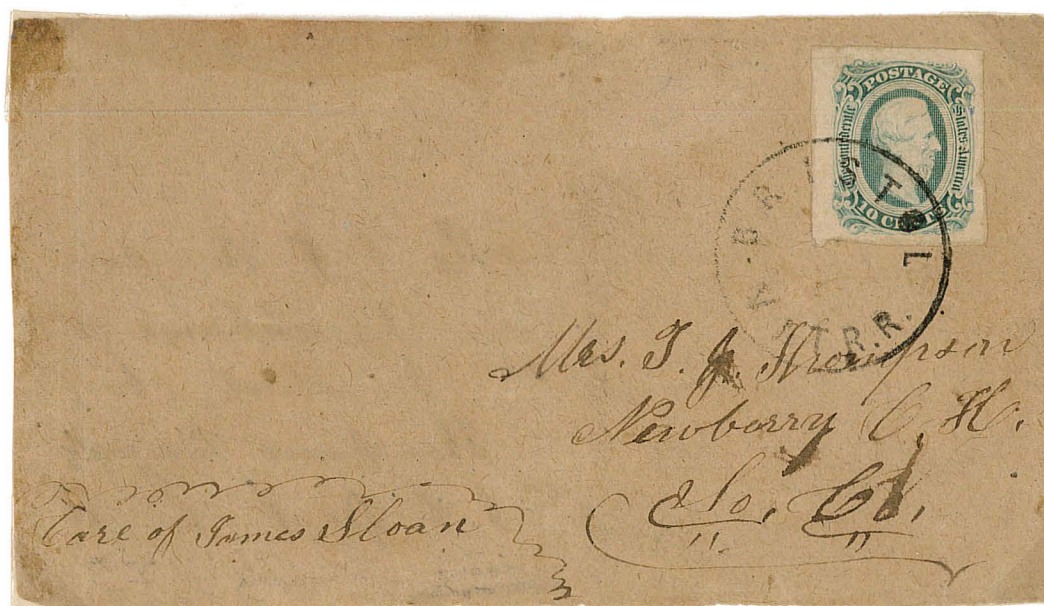 POSTAGE
The Confederate States of America
10 CENTS
BRISTOL
T.R.R.
Mrs. T. J. Thompson
Newberry C. H.
So. Ca.
Care of James Sloan